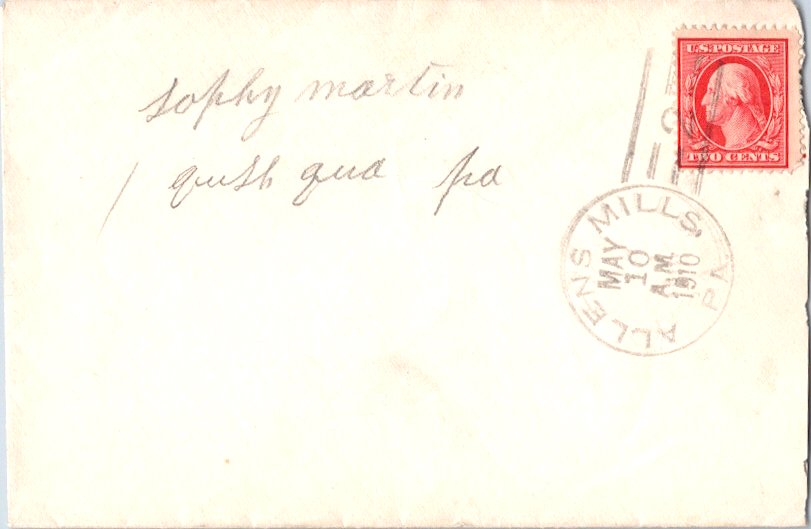 U.S. POSTAGE
TWO CENTS
sophy martin
qush qua pa
ALLENS MILLS, PA
MAY
10
A.M.
1910